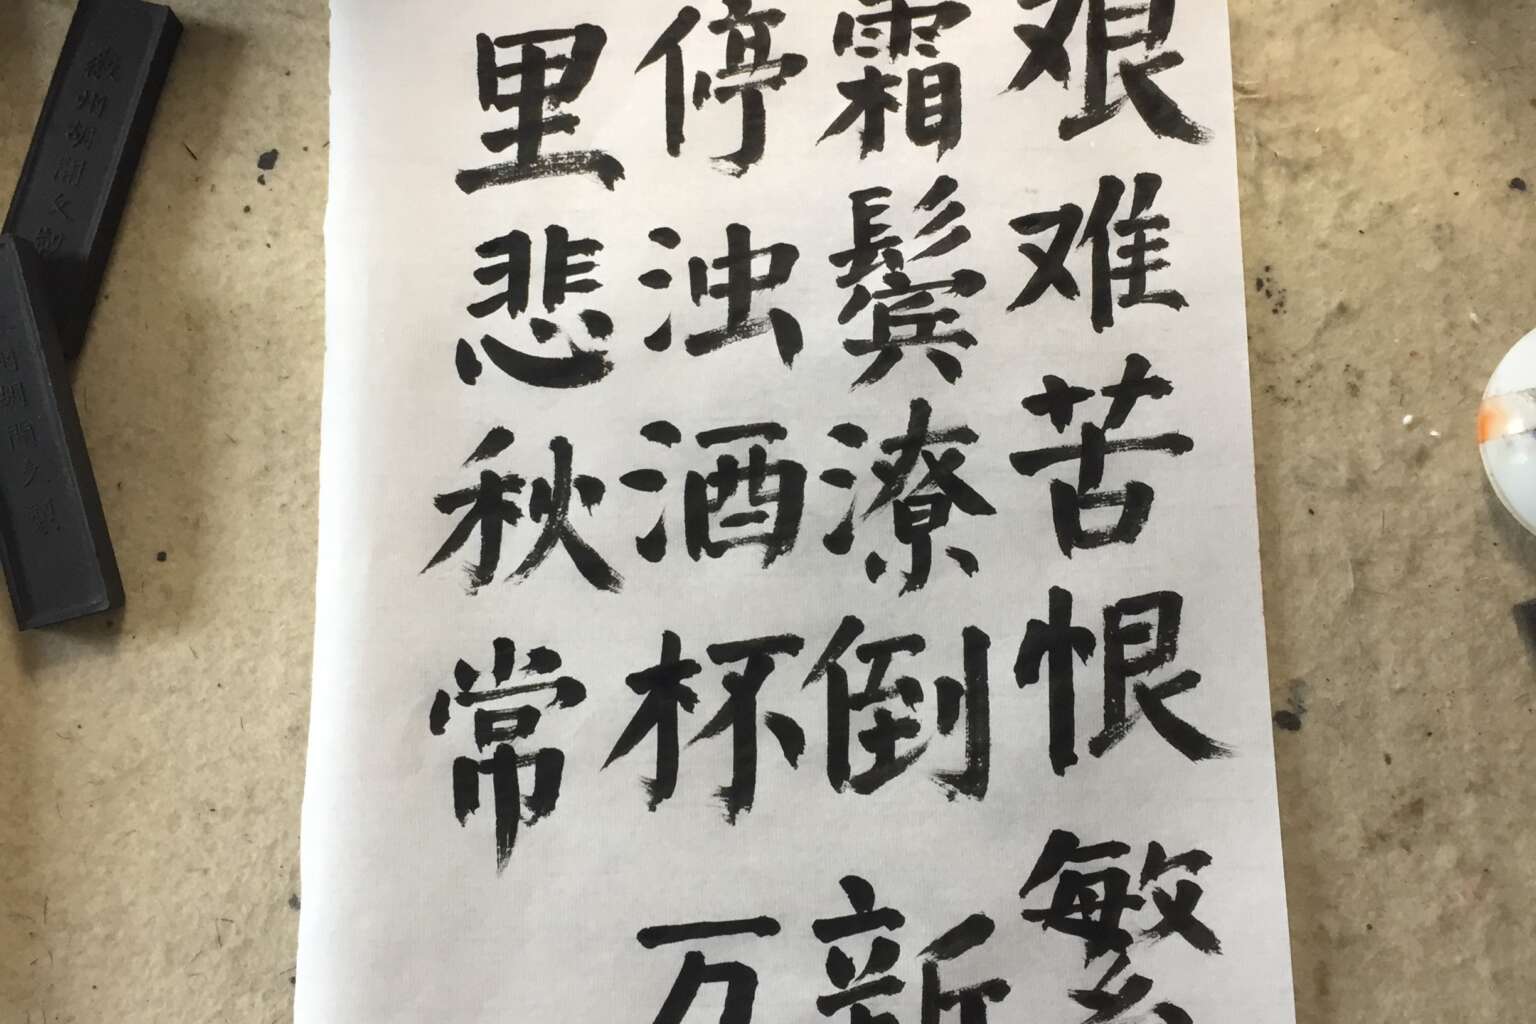 艰难苦恨繁
霜鬓潦倒新
停浊酒杯万
里悲秋常
徽州胡開文製
胡開文製